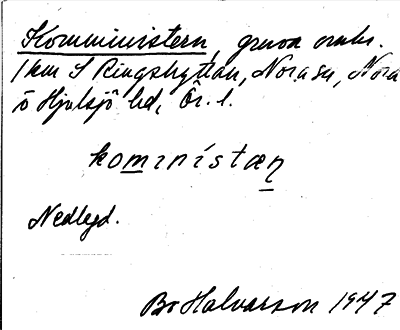 Komministern, gruva omkr.
1 km S Ringshyttan, Nora sn, Nora
o Hjulsjö bd, Ör. l.
komınístæn
Nedlegd.
Bo Halvarson 1947